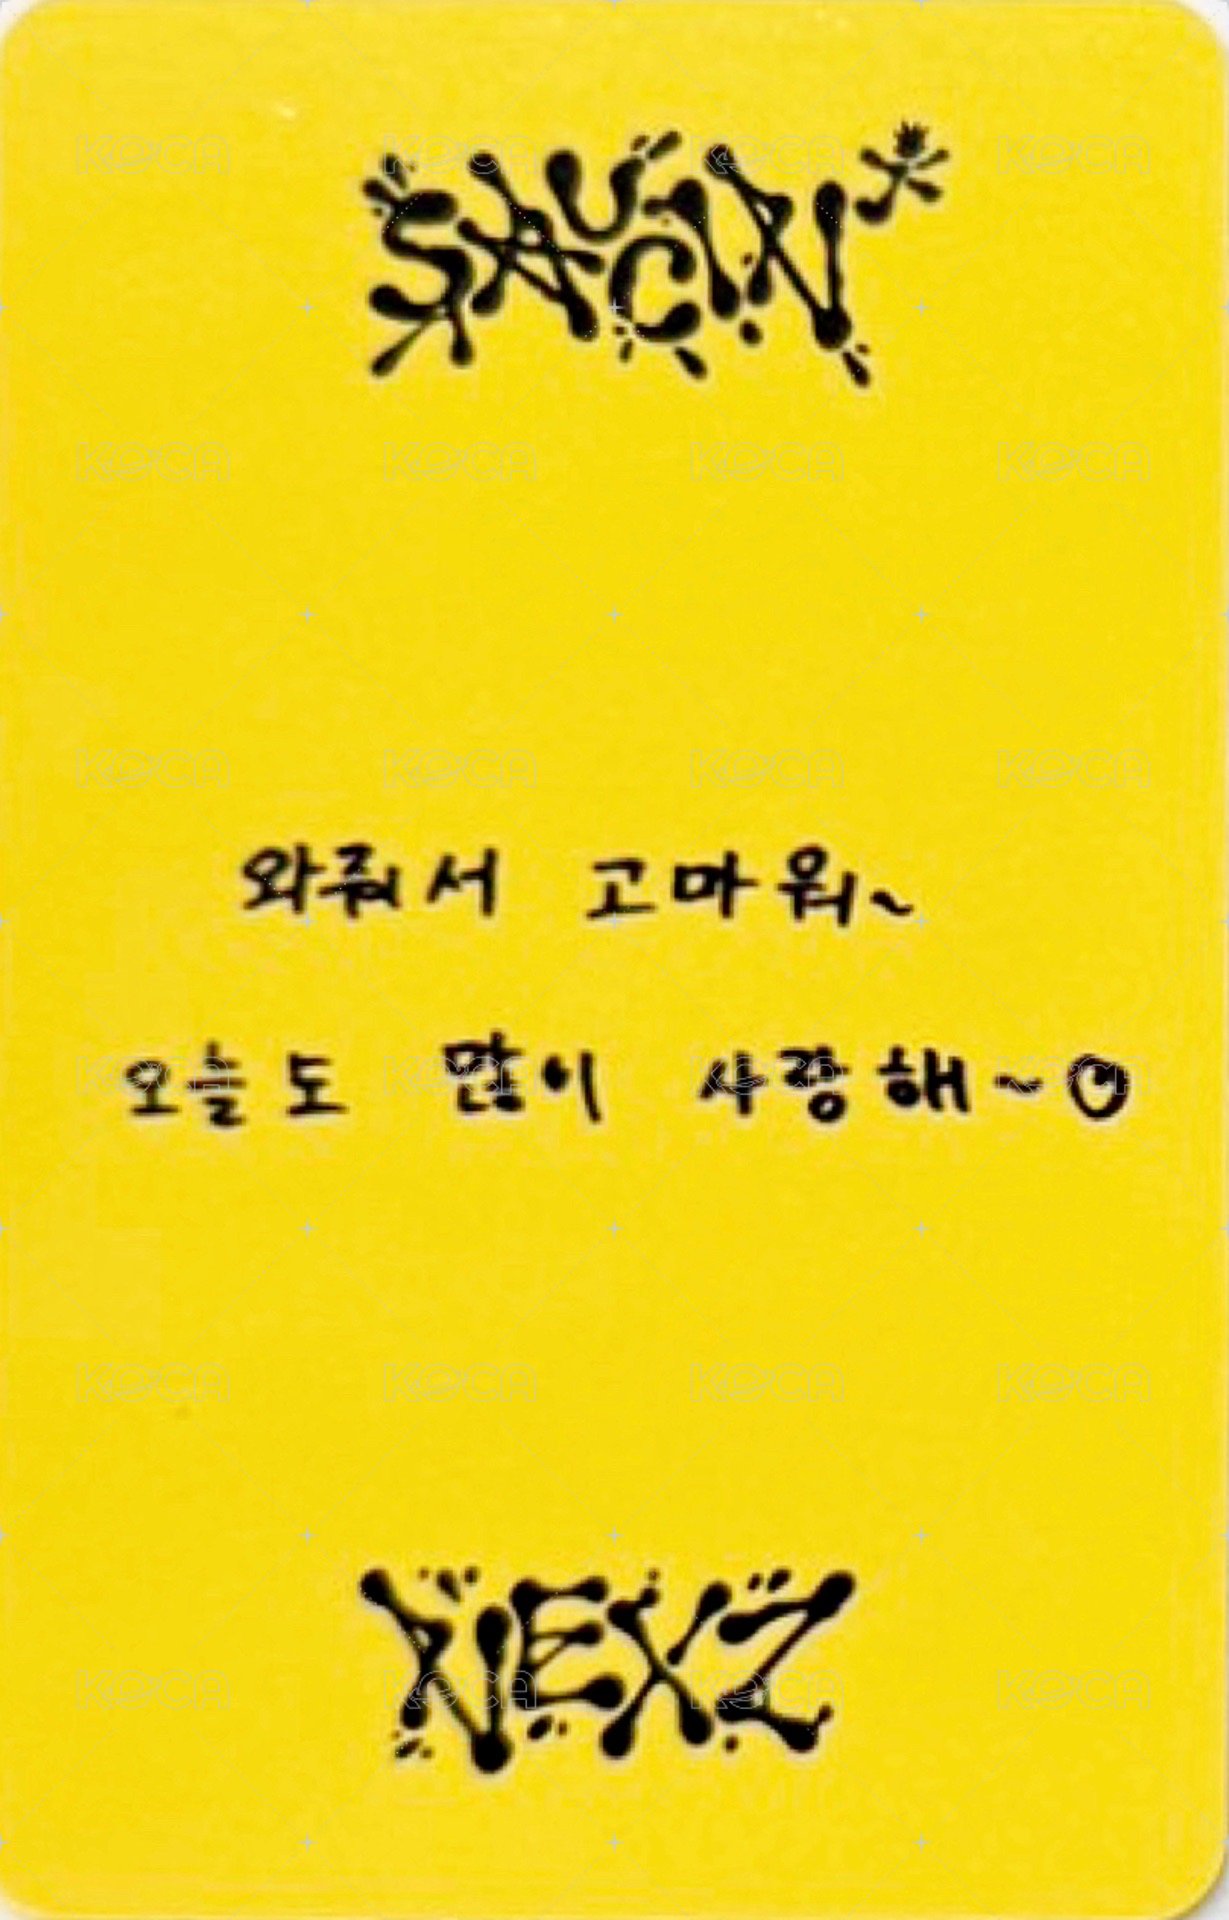 SAUCIN'
와줘서 고마워~
오늘도 많이 사랑해~
NEXZ
KOCA